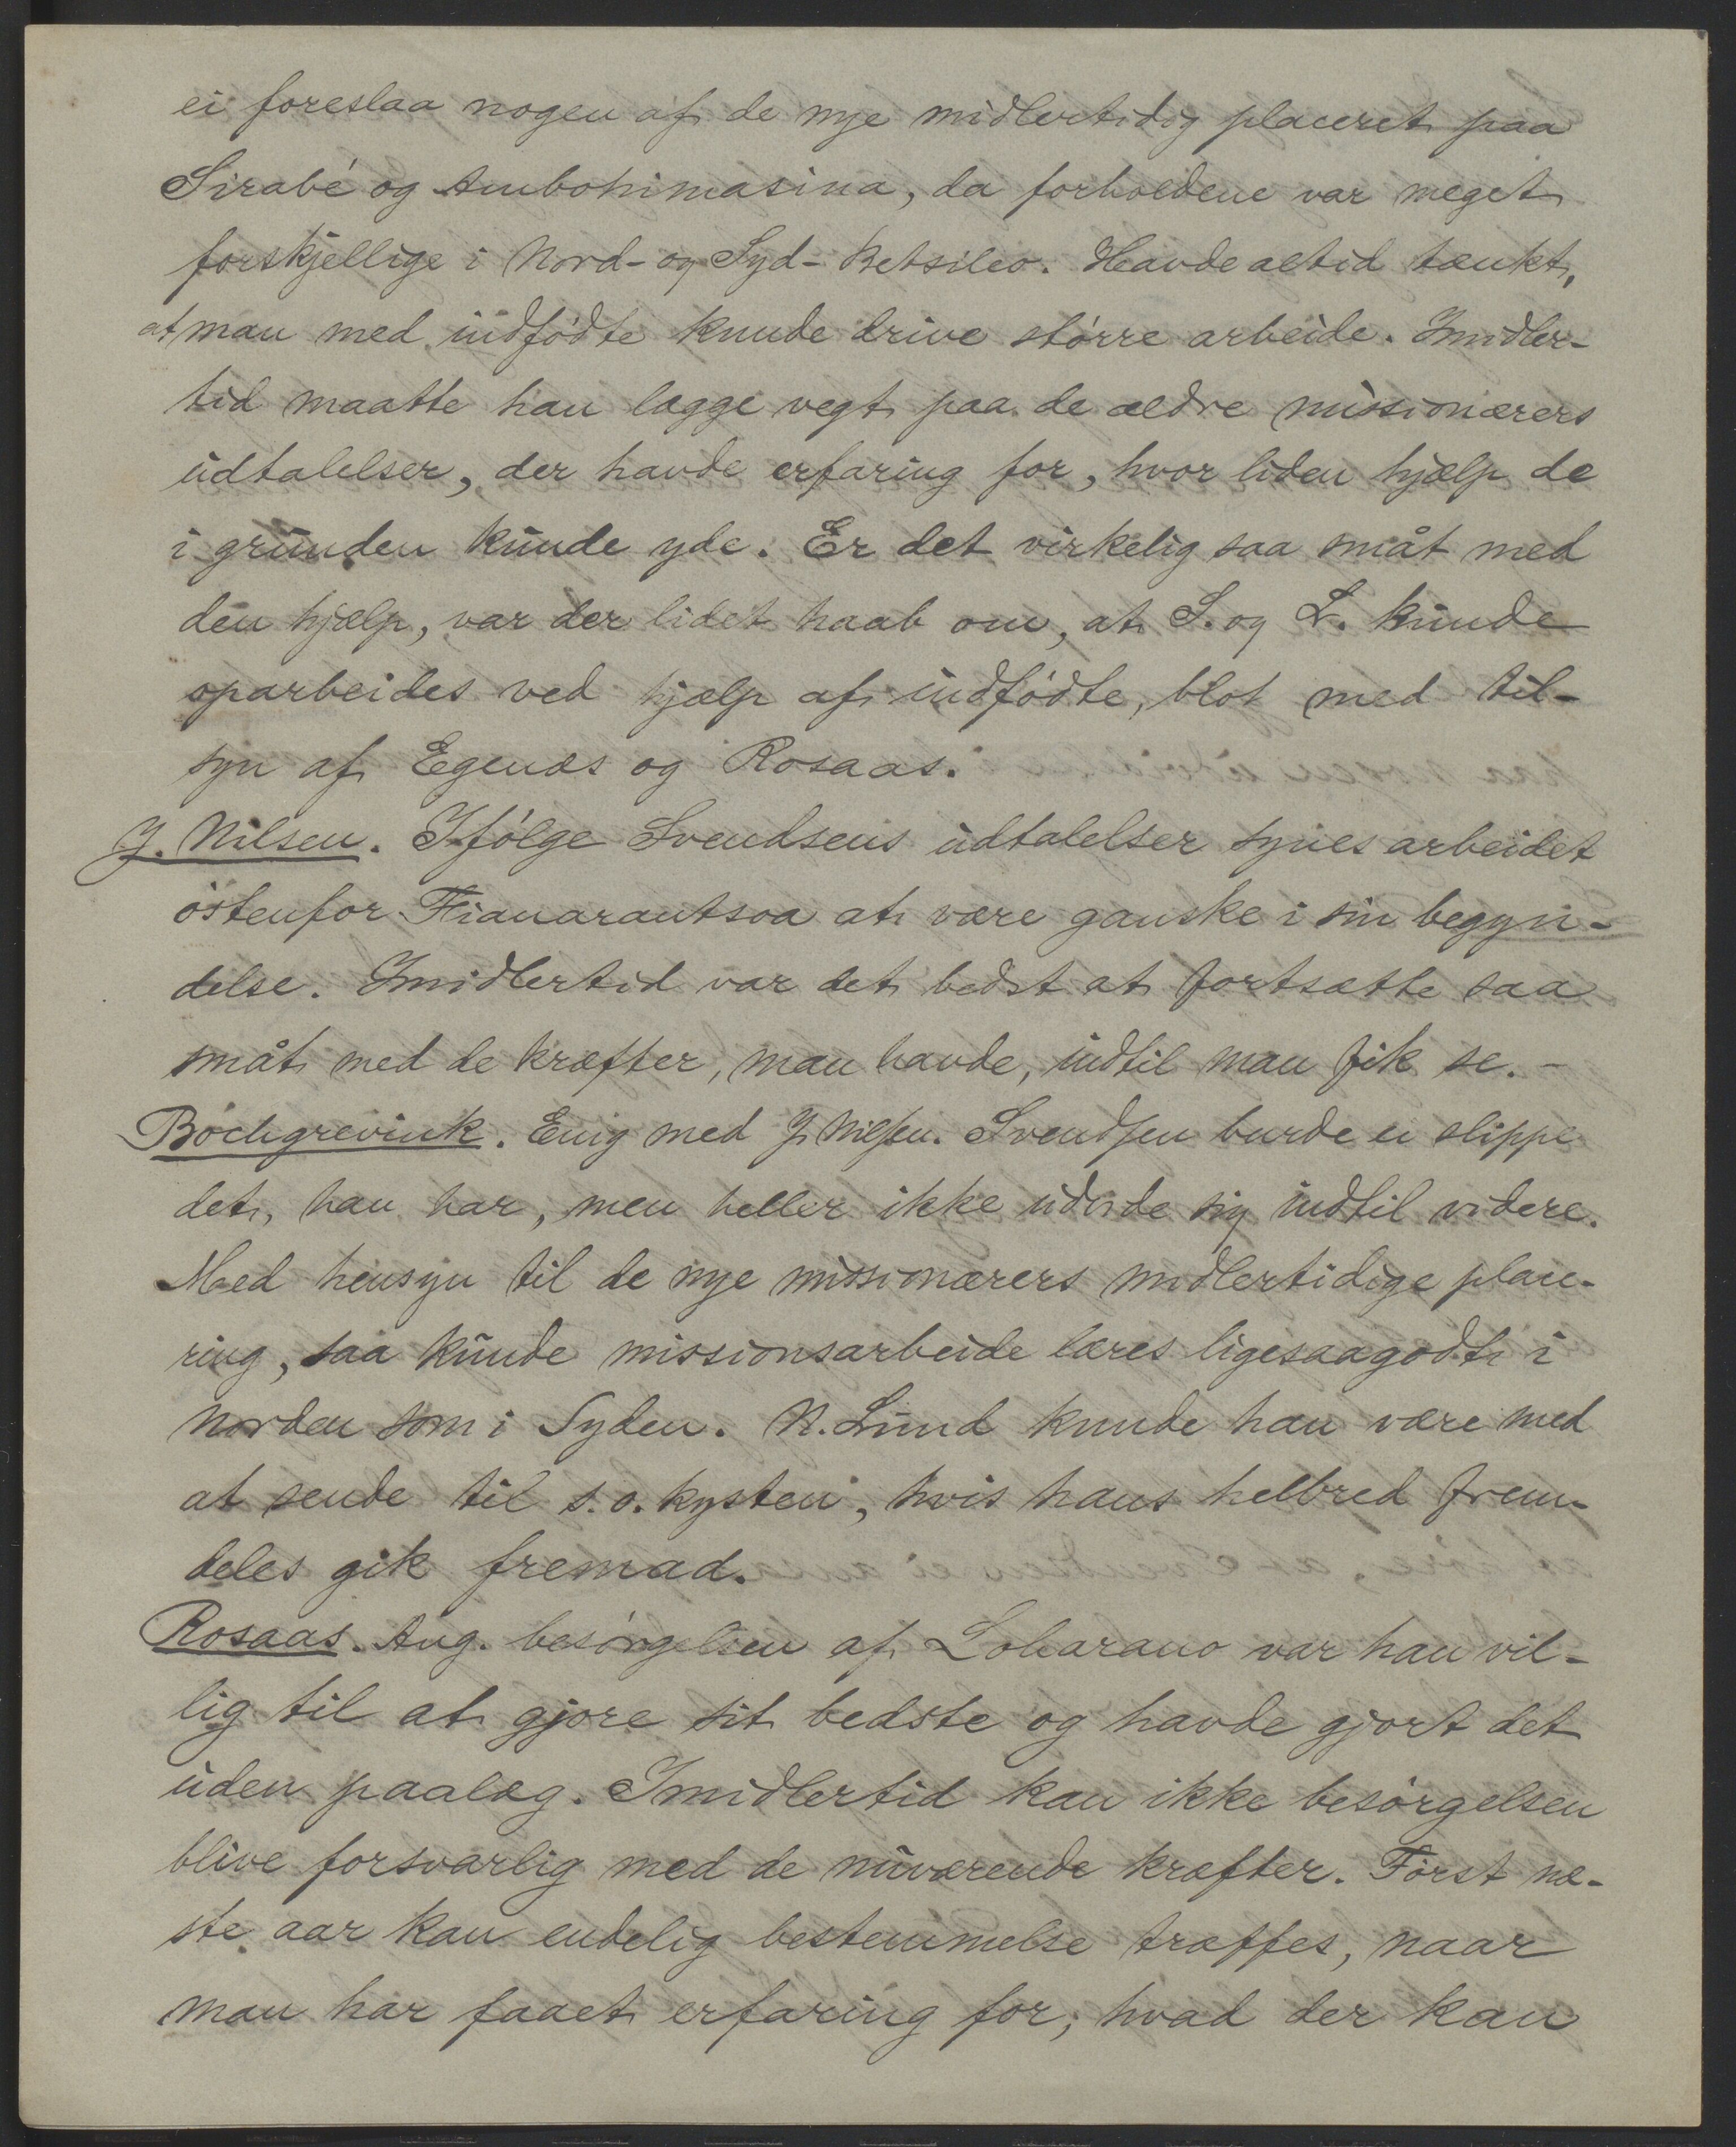 ei foreslaa nogen af de nye midlertidig placeret paa
Sirabé og Ambohimasina, da forholdene var meget
forskjellige i Nord- og Syd-Betsileo. Havde altid tænkt,
at man med indfødte kunde drive større arbeide. Imidler-
tid maatte han lægge vegt paa de ældre missionærers
udtalelser, der havde erfaring for, hvor liden hjælp de
i grunden kunde yde. Er det virkelig saa småt med
den hjælp, var der lidet haab om, at S. og L. kunde
oparbeides ved hjælp af indfødte, blot med til-
syn af Egenæs og Rosaas.
J. Nilsen. Ifølge Svendsens udtalelser synes arbeidet
østenfor Fianarantsoa at være ganske i sin begyn-
delse. Imidlertid var det bedst at fortsætte saa
småt med de kræfter, man havde, indtil man fik se. -
Borchgrevink. Enig med J. Nilsen. Svendsen burde ei slippe
det, han har, men heller ikke udvide sig indtil videre.
Med hensyn til de nye missionærers midlertidige place-
ring, saa kunde missionsarbeide læres ligesaagodt i
Norden som i Syden. N. Lund kunde han være med
at sende til s.o. kysten, hvis hans helbred frem-
deles gik fremad.
Rosaas. Ang. besørgelsen af Loharano var han vil-
lig til at gjøre sit bedste og havde gjort det
uden paalæg. Imidlertid kan ikke besørgelsen
blive forsvarlig med de nuværende kræfter. Først næ-
ste aar kan endelig bestemmelse træffes, naar
man har faaet erfaring for, hvad der kan